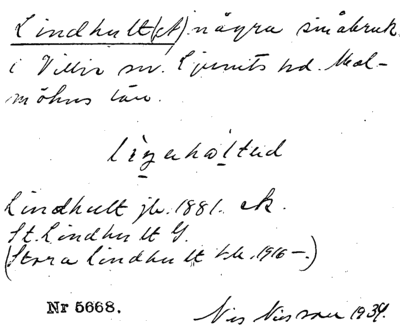 Lindhult(et) några småbruk
i Villie sn. Ljunits hd. Mal-
möhus län.
Lindhult jb. 1881. ek.
St. Lindhult G.
(Stora Lindhult tb. 1916-.)
Nr 5668.
Nils Nilsson 1934.